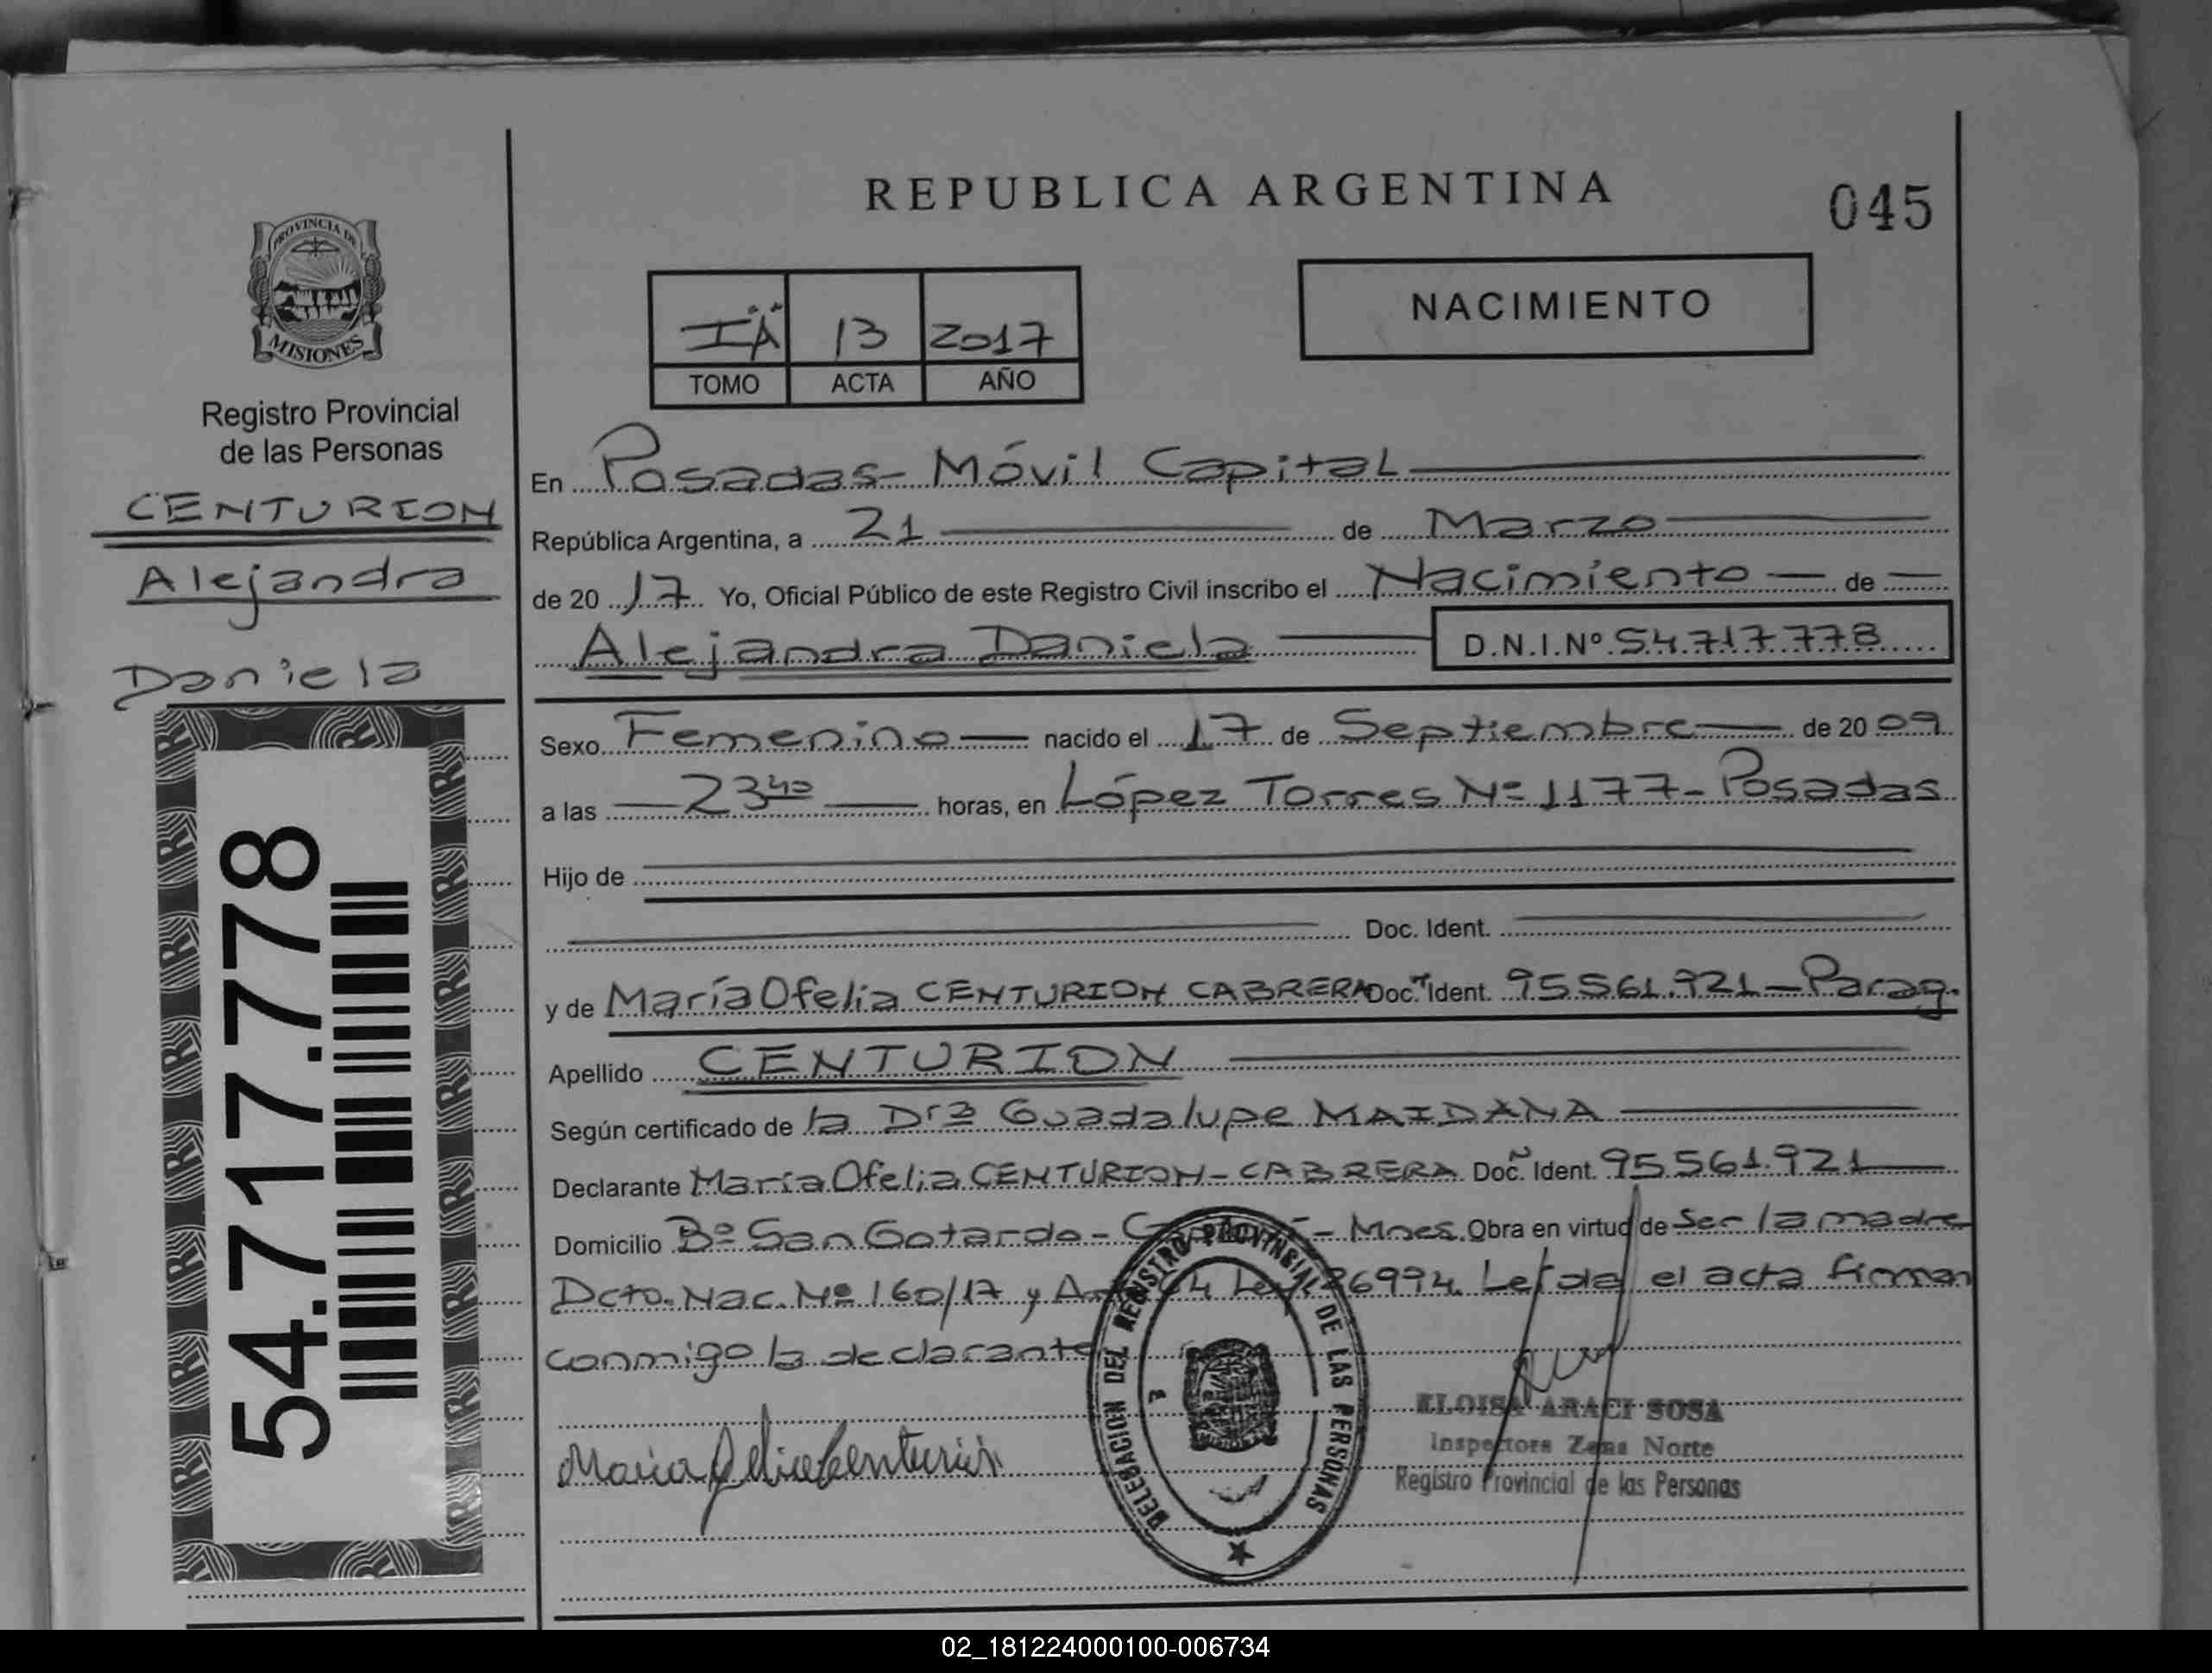 REPUBLICA ARGENTINA
045
PROVINCIA DE
MISIONES
Registro Provincial
de las Personas
CENTURION
Alejandra
Daniela
54.717.778
IÄ 13 2017
TOMO ACTA AÑO
NACIMIENTO
En Posadas - Móvil Capital
República Argentina, a 21 de Marzo
de 20 17 Yo, Oficial Público de este Registro Civil inscribo el Nacimiento de
Alejandra Daniela D.N.I.Nº 54.717.778
Sexo Femenino nacido el 17 de Septiembre de 20 09
a las 23 40 horas, en López Torres Nº 1177 - Posadas
Hijo de
Doc. Ident.
y de María Ofelia CENTURION CABRERA Doc. Ident. 95561.921 - Parag.
Apellido CENTURION
Según certificado de la Dra Guadalupe MAIDANA
Declarante María Ofelia CENTURION - CABRERA Doc. Ident. 95561.921
Domicilio Bº San Gotardo - - Mnes. Obra en virtud de ser la madre
Dcto. Nac. Nº 160/17 y Ley 26994. Leída el acta firman
conmigo la declarante
Maria Ofelia Centurión
DELEGACION DEL REGISTRO PROVINCIAL DE LAS PERSONAS
ELOISA ARACI SOSA
Inspectora Zona Norte
Registro Provincial de las Personas
02_181224000100-006734